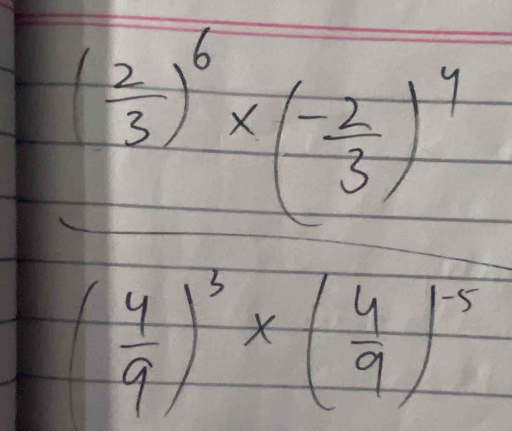 (2/3)^6 × (-2/3)^4
(4/9)^3 × (4/9)^-5